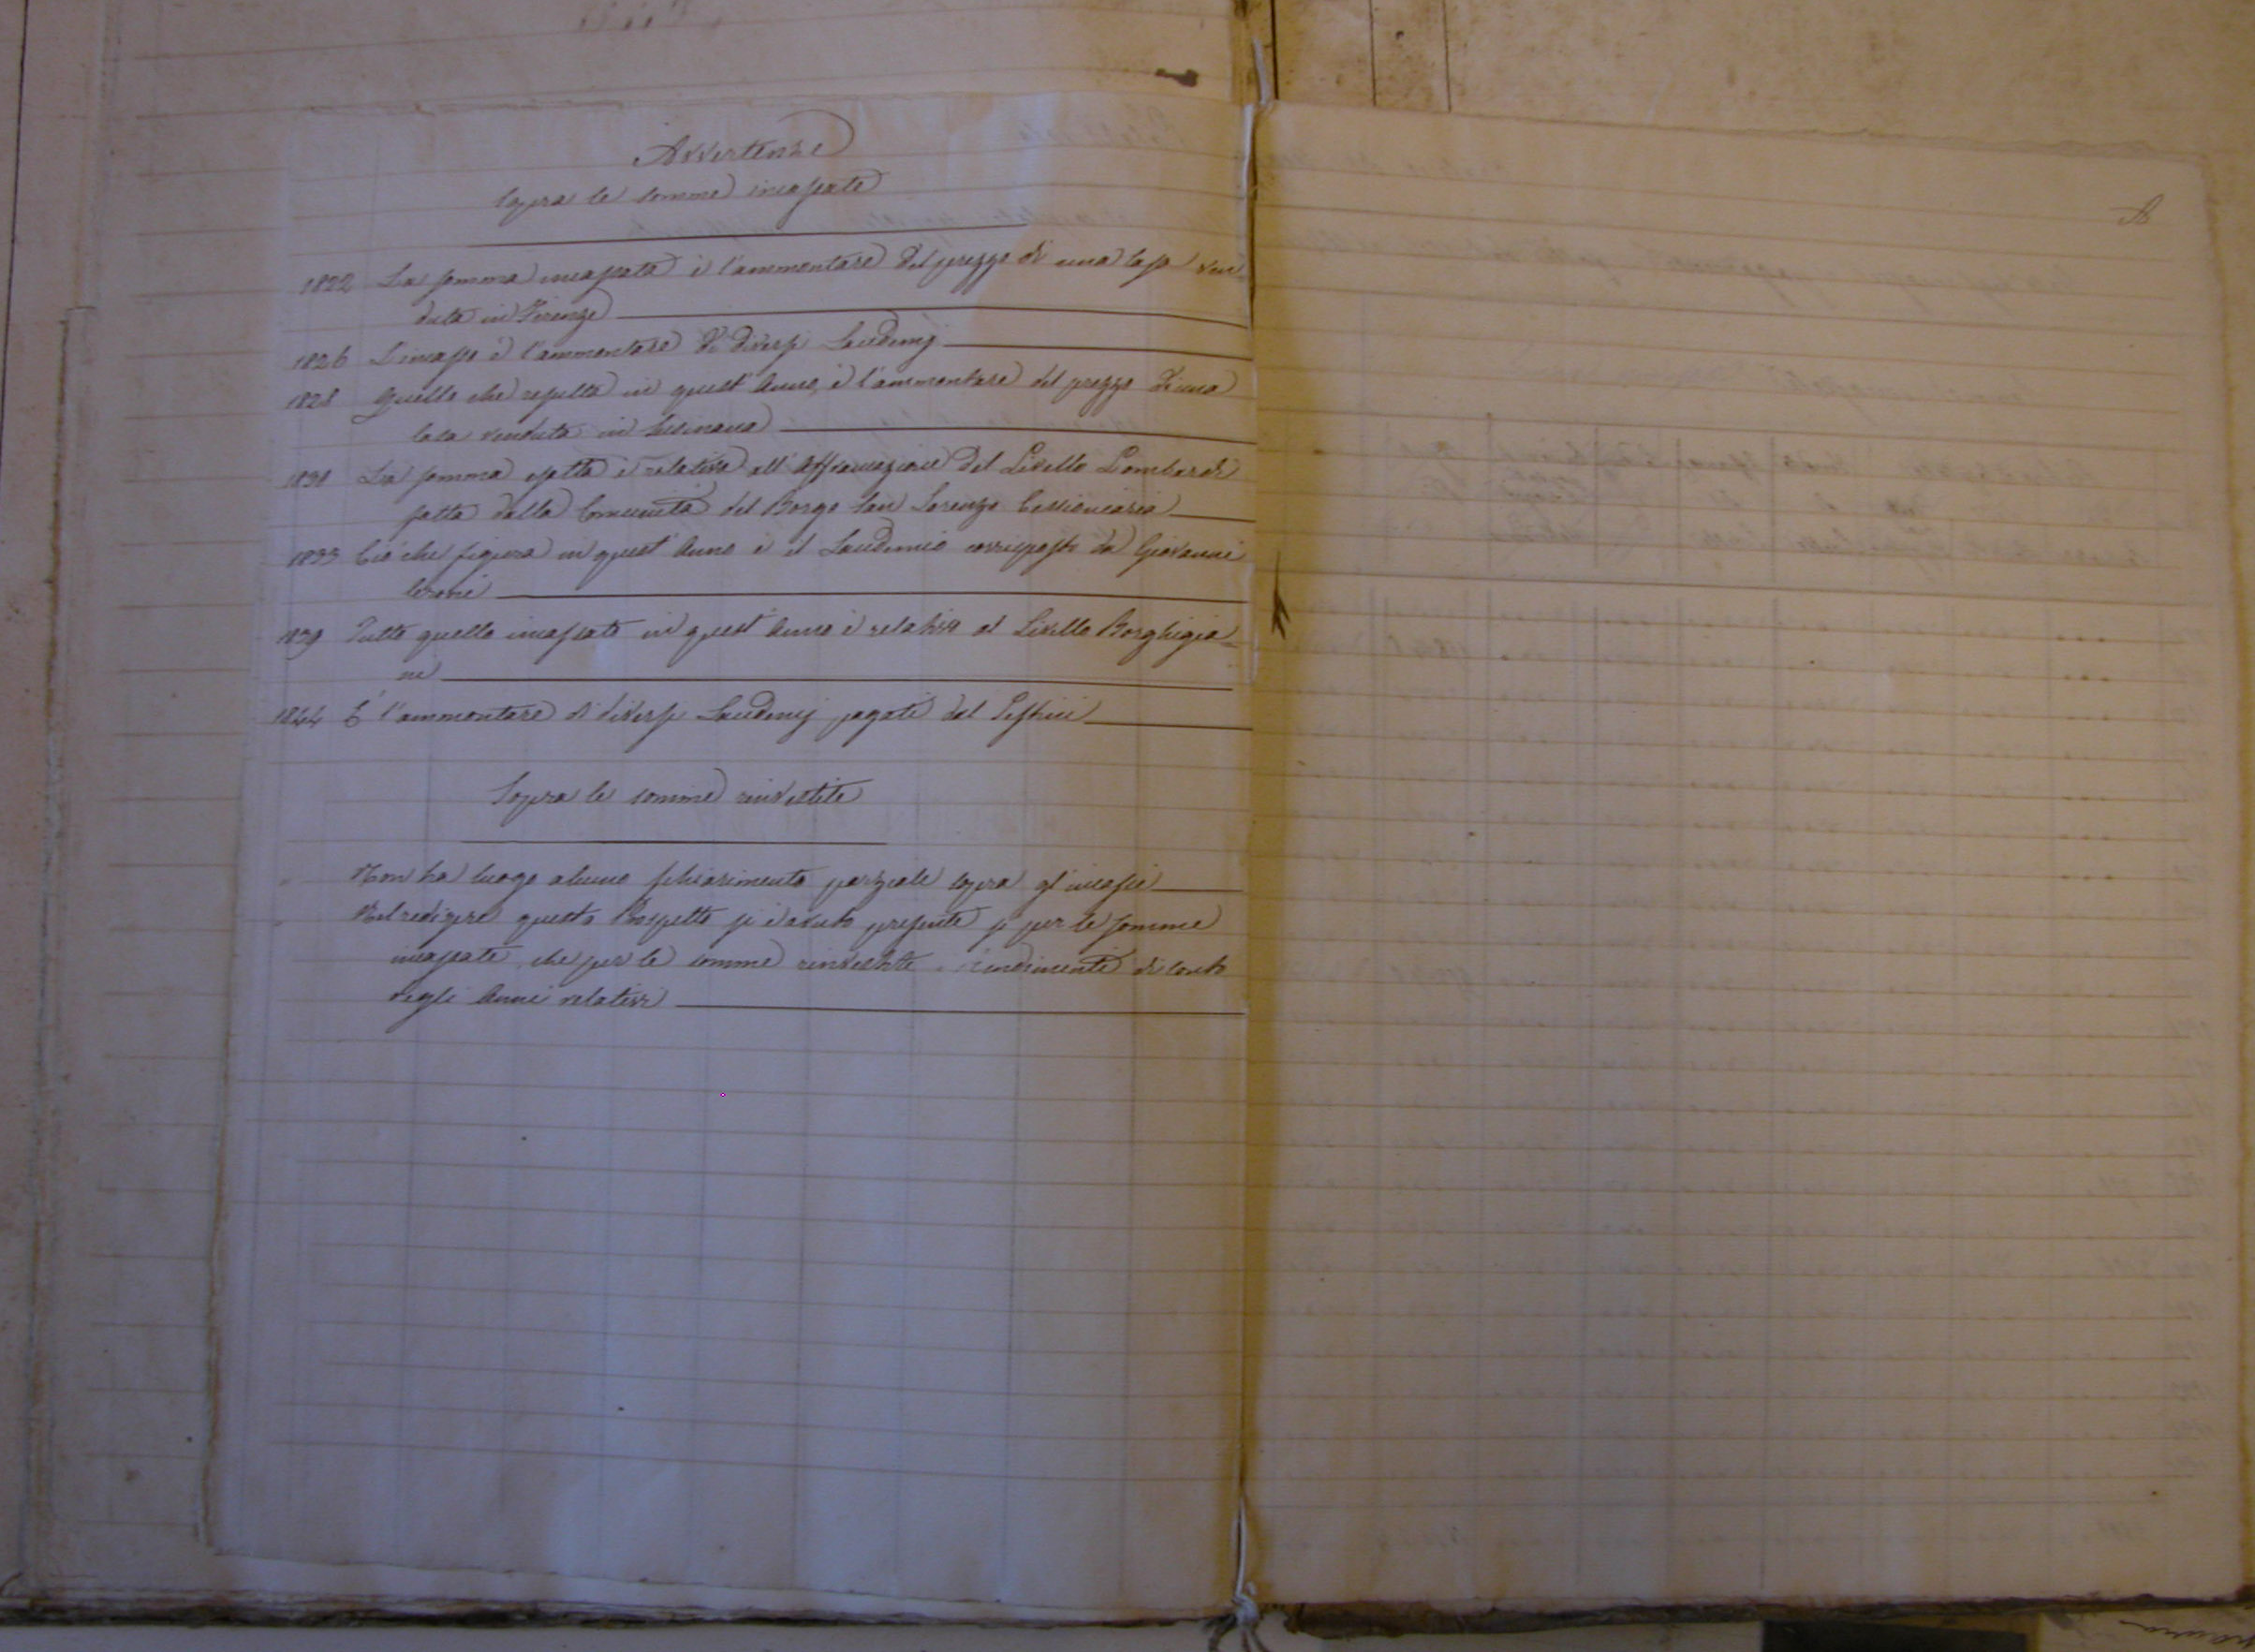 Avvertenze
Sopra le somme incassate
1822 La somma incassata è l'ammontare del prezzo di una Casa ven
duta in Firenze
1826 L'incasso è l'ammontare di diversi Laudemj
1828 Quello che resulta in quest'Anno, è l'ammontare del prezzo di una
Casa venduta in
La somma esatta è relativa all'Affrancazione del Livello Lombardi
fatta dalla Comunità del Borgo San Lorenzo Cessionaria
1833 Ciò che figura in quest'Anno è il Laudemio corrisposto da Giovanni
1839 Tutto quello incassato in quest'Anno è relativo al Livello Borghigia
ni
1844 È l'ammontare di diversi Laudemj pagati dal
Sopra le somme rinvestite
" Non ha luogo alcuno schiarimento parziale sopra gl'incassi
" Nel redigere questo Prospetto si è avuto presente sì per le somme
incassate, che per le somme rinvestite i rendimenti di conto
degli Anni relativi
A